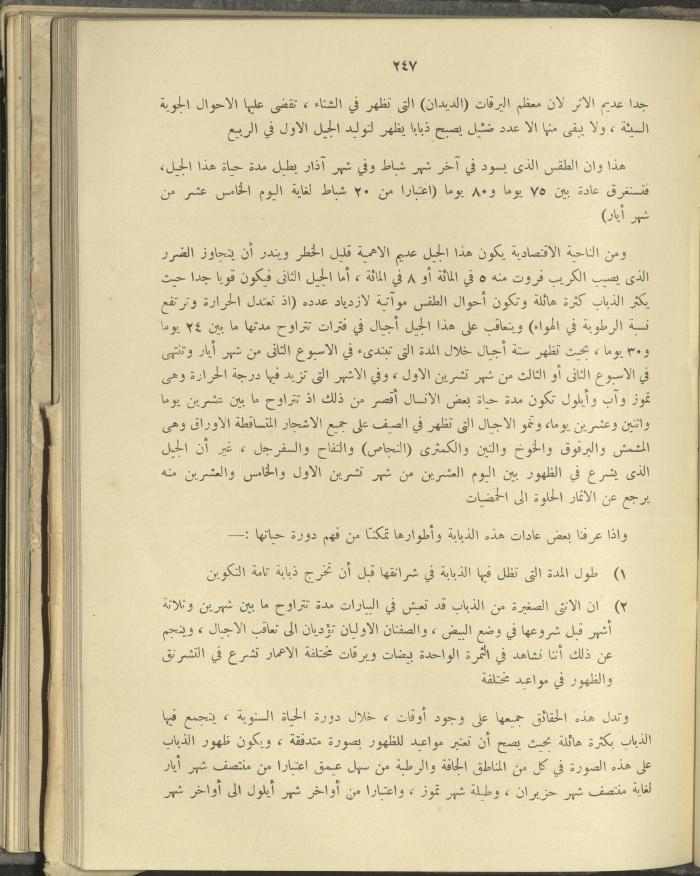 ٢٤٧
جدا عديم الاثر لان معظم اليرقات (الديدان) التى تظهر في الشتاء ، تقضى عليها الاحوال الجوية
السيئة ، ولا يبقى منها الا عدد ضئيل يصبح ذبابا يظهر لتوليد الجيل الاول في الربيع
هذا وان الطقس الذى يسود في آخر شهر شباط وفي شهر آذار يطيل مدة حياة هذا الجيل،
فتستغرق عادة بين ٧٥ يوما و٨٠ يوما (اعتبارا من ٢٠ شباط لغاية اليوم الخامس عشر من
شهر أيار)
ومن الناحية الاقتصادية يكون هذا الجيل عديم الاهمية قليل الخطر ويندر أن يتجاوز الضرر
الذى يصيب الكريب فروت منه ٥ في المائة أو ٨ في المائة ، أما الجيل الثانى فيكون قويا جدا حيث
يكثر الذباب كثرة هائلة وتكون أحوال الطقس موآتية لازدياد عدده (اذ تعتدل الحرارة وترتفع
نسبة الرطوبة في الهواء) ويتعاقب على هذا الجيل أجيال في فترات تتراوح مدتها ما بين ٢٤ يوما
و٣٠ يوما ، بحيث تظهر ستة أجيال خلال المدة التى تبتدىء في الاسبوع الثانى من شهر أيار وتنتهى
في الاسبوع الثانى أو الثالث من شهر تشرين الاول ، وفي الاشهر التى تزيد فيها درجة الحرارة وهى
تموز وآب وأيلول تكون مدة حياة بعض الانسال أقصر من ذلك اذ تتراوح ما بين عشرين يوما
واثنين وعشرين يوما، وتنمو الاجيال التى تظهر في الصيف على جميع الاشجار المتساقطة الاوراق وهى
المشمش والبرقوق والخوخ والتين والكمثرى (النجاص) والتفاح والسفرجل ، غير أن الجيل
الذى يشرع في الظهور بين اليوم العشرين من شهر تشرين الاول والخامس والعشرين منه
يرجع عن الاثمار الحلوة الى الحمضيات
واذا عرفنا بعض عادات هذه الذبابة وأطوارها تمكنا من فهم دورة حياتها :—
١) طول المدة التى تظل فيها الذبابة في شرانقها قبل أن تخرج ذبابة تامة التكوين
٢) ان الانثى الصغيرة من الذباب قد تعيش في البيارات مدة تتراوح ما بين شهرين وثلاثة
أشهر قبل شروعها في وضع البيض ، والصفتان الاوليان تؤديان الى تعاقب الاجيال ، وينجم
عن ذلك أننا نشاهد في الثمرة الواحدة بيضات ويرقات مختلفة الاعمار تشرع في التشرنق
والظهور في مواعيد مختلفة
وتدل هذه الحقائق جميعها على وجود أوقات ، خلال دورة الحياة السنوية ، يتجمع فيها
الذباب بكثرة هائلة بحيث يصح أن تعتبر مواعيد للظهور بصورة متدفقة ، ويكون ظهور الذباب
على هذه الصورة في كل من المناطق الجافة والرطبة من سهل عيمق اعتبارا من منتصف شهر أيار
لغاية منتصف شهر حزيران ، وطيلة شهر تموز ، واعتبارا من أواخر شهر أيلول الى أواخر شهر